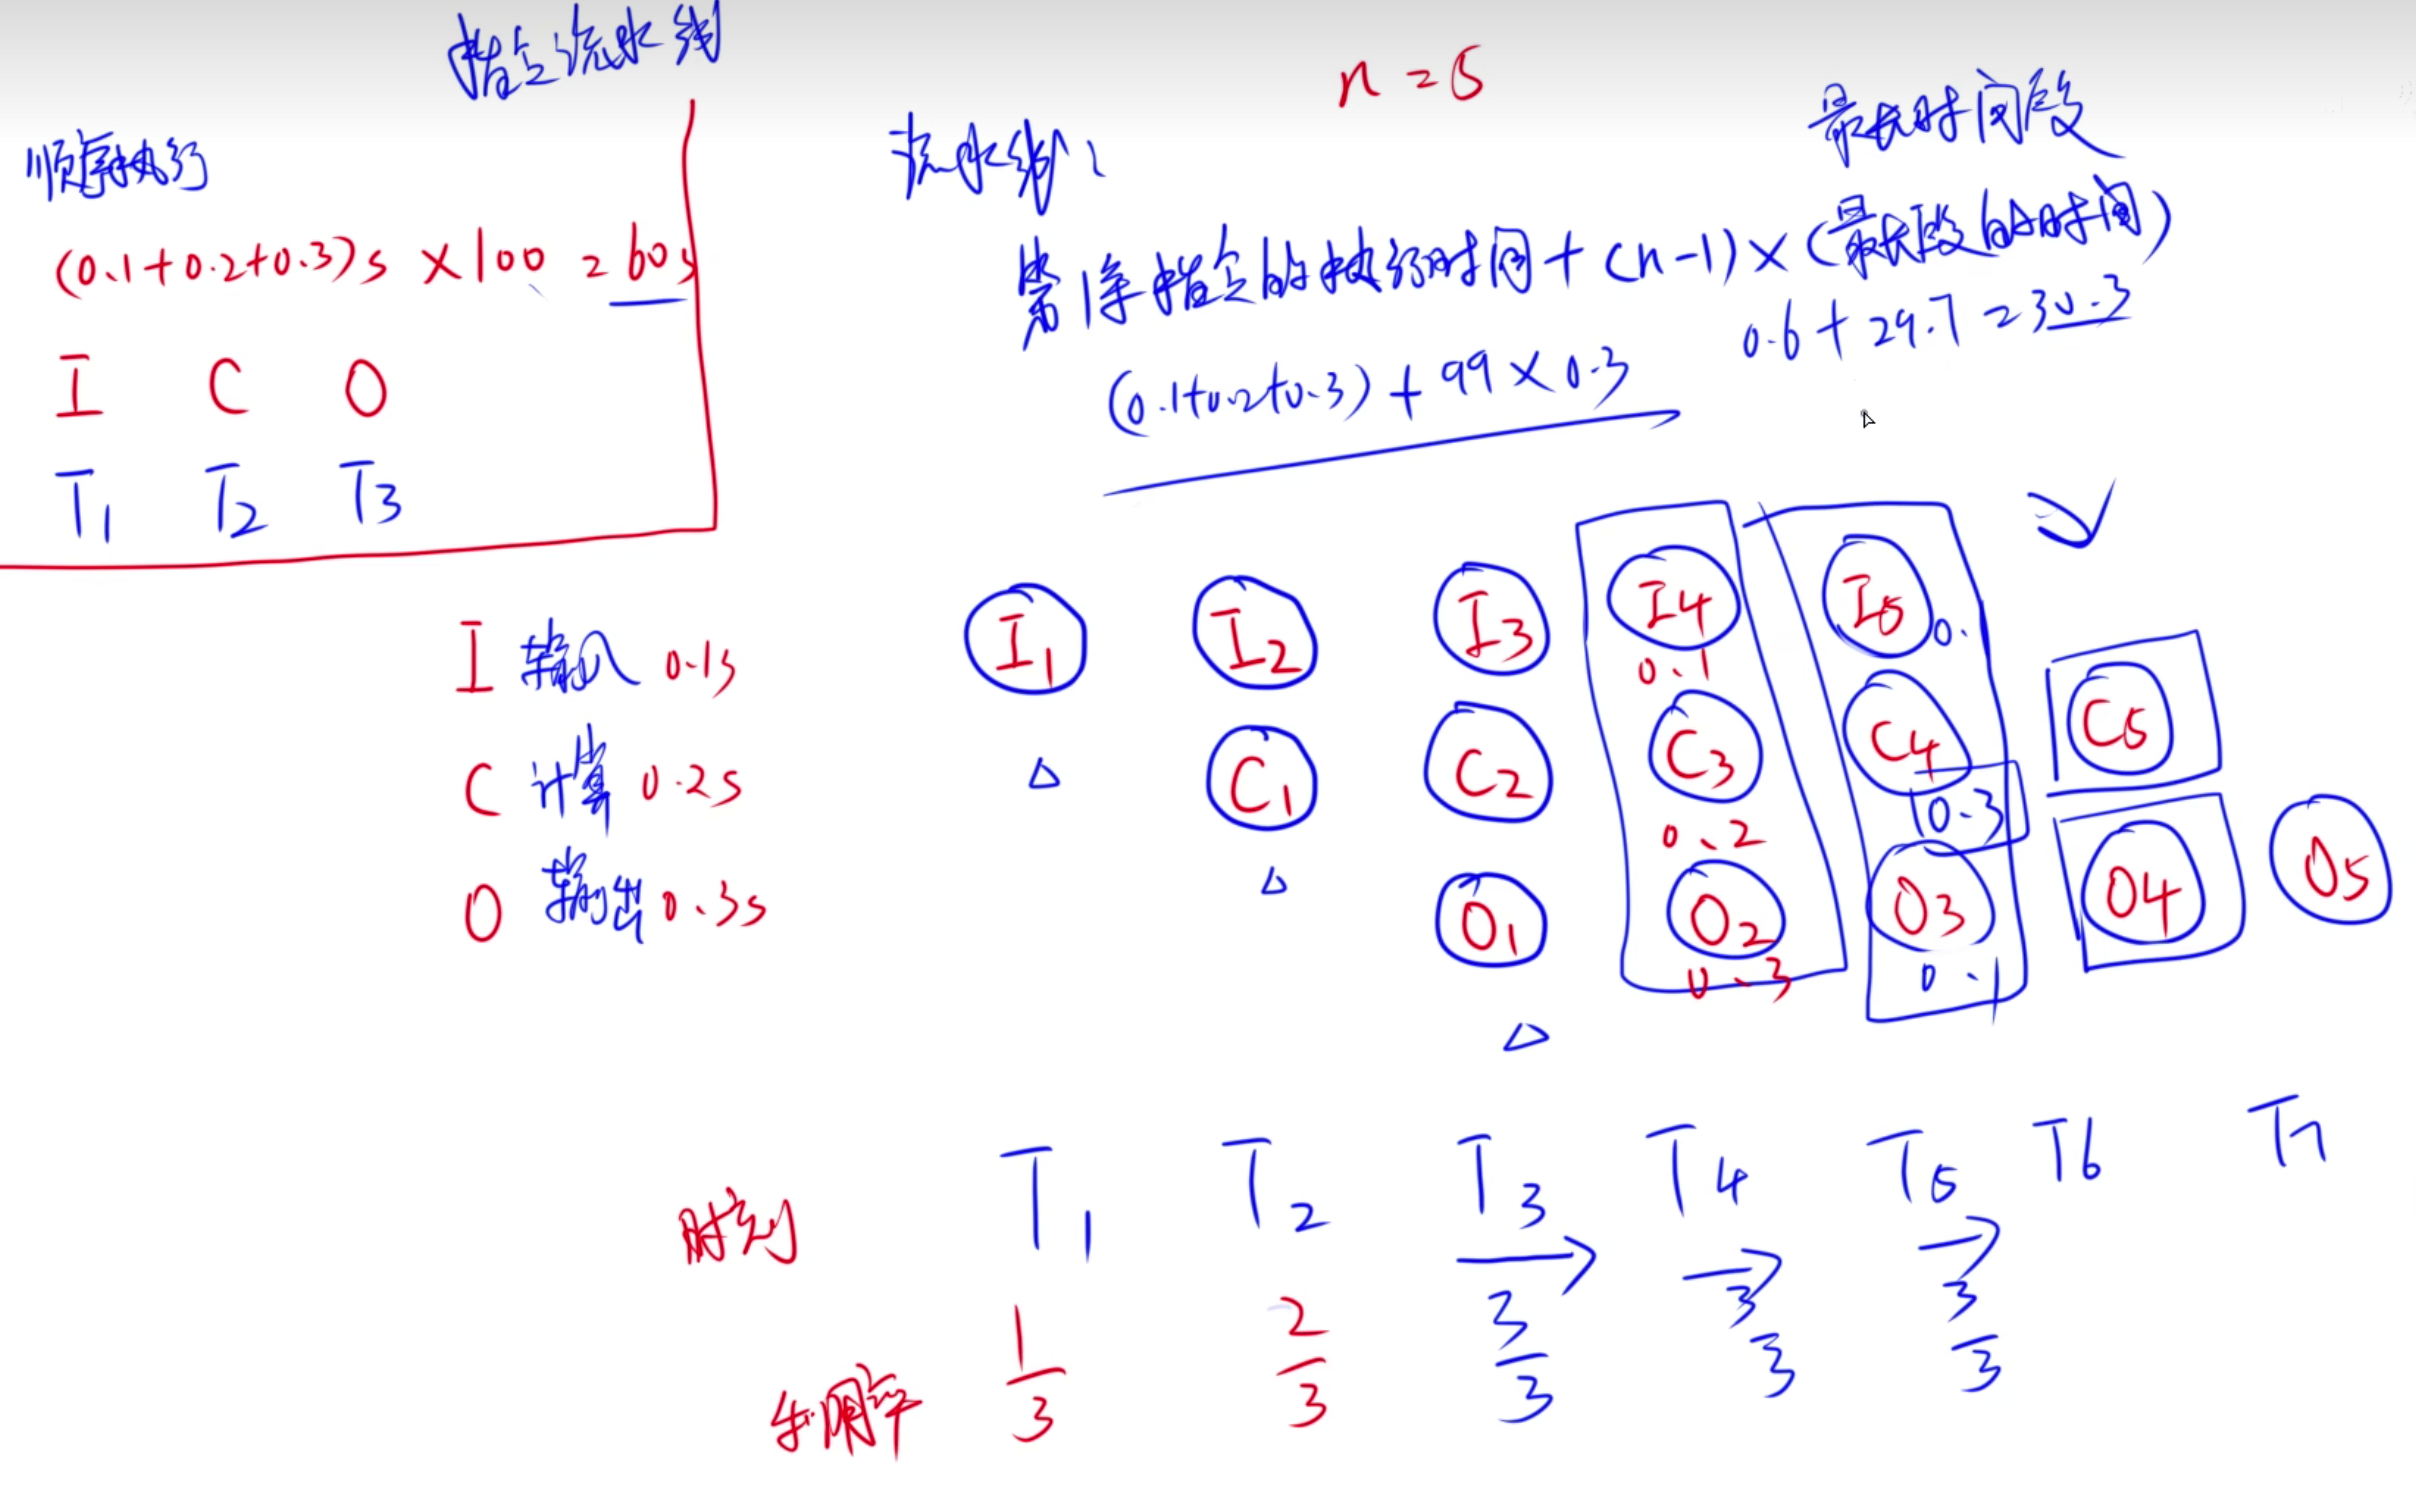 指令流水线
n = 5
顺序执行
(0.1+0.2+0.3)s ×100 = 60s
I C O
T1 T2 T3
流水线:
最长时间段
第1条指令的执行时间 + (n-1) × (最长段的时间)
(0.1+0.2+0.3) + 99 × 0.3
0.6 + 29.7 = 30.3
I 输入 0.1s
C 计算 0.2s
O 输出 0.3s
I1 I2 I3 I4 I5
0.1 0.
C1 C2 C3 C4 C5
0.2 0.3
O1 O2 O3 O4 O5
0.3 0.1
时刻 T1 T2 T3 T4 T5 T6 T7
1/3 2/3 3/3 3/3 3/3